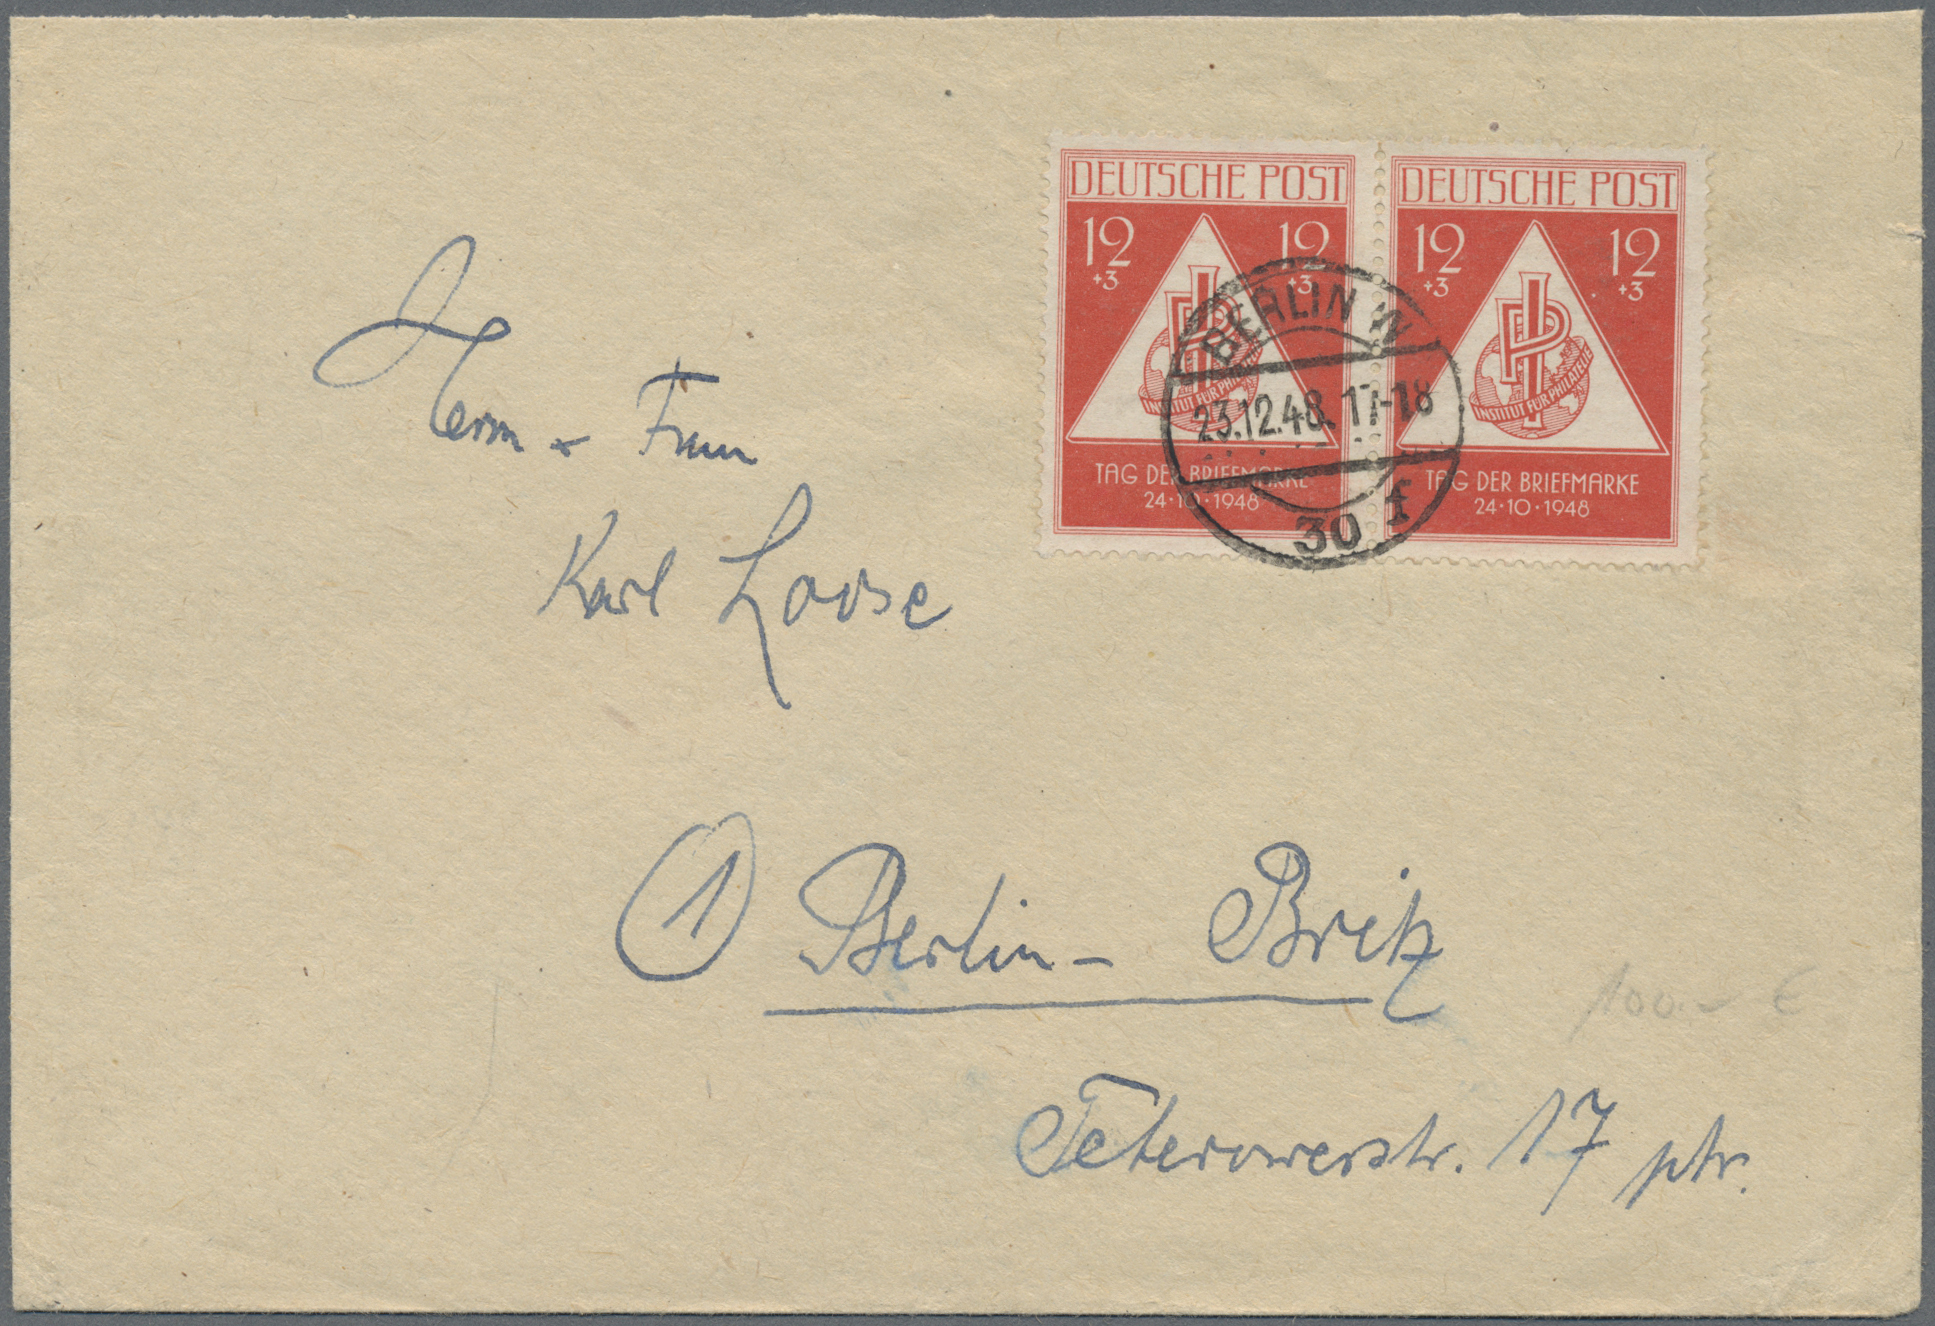 DEUTSCHE POST DEUTSCHE POST
12 12 12 12
+3 +3 +3 +3
INSTITUT FÜR PHILATELIE
TAG DER BRIEFMARKE TAG DER BRIEFMARKE
24·10·1948 24·10·1948
BERLIN W
23.12.48. 17-18
30 f
Herrn + Frau
Karl Loose
1 Berlin - Britz
100.- €
Teterowerstr. 17 ptr.